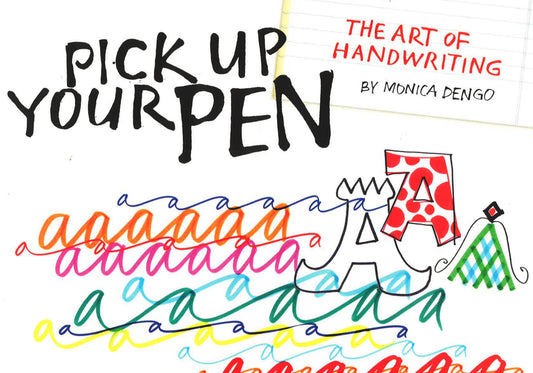 PICK UP
YOUR PEN
THE ART OF
HANDWRITING
BY MONICA DENGO
A A A
a a a a a a a
a a a a a a a
a a a a a a a
a a a a a a